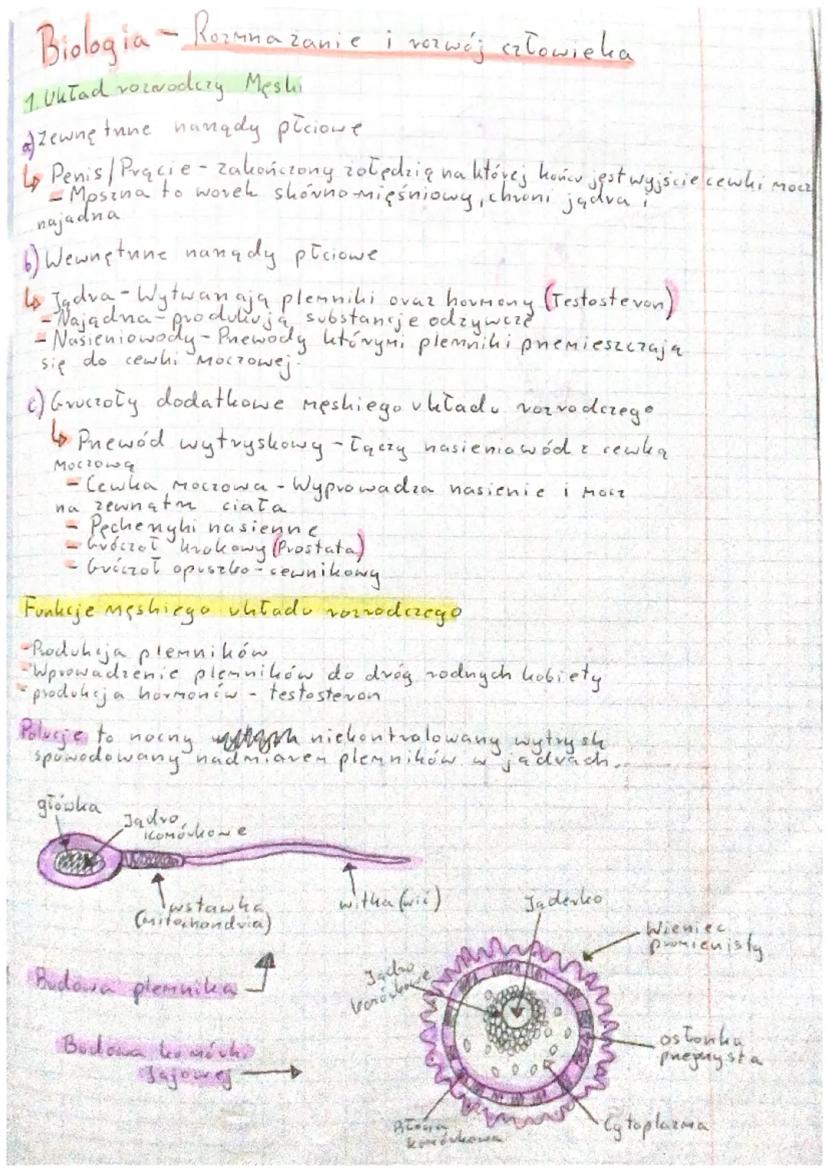 Biologia - Rozmnażanie i rozwój człowieka
1. Układ rozrodczy Męski
a) Zewnętrzne narządy płciowe
↳ Penis/Prącie - zakończony żołędzią na której końcu jest wyjście cewki mocz
- Moszna to worek skórno-mięśniowy, chroni jądra i
najądrza
b) Wewnętrzne narządy płciowe
↳ Jądra - Wytwarzają plemniki oraz hormony (Testosteron)
- Najądrza - produkują substancje odżywcze
- Nasieniowody - Przewody którymi plemniki przemieszczają
się do cewki moczowej.
c) Gruczoły dodatkowe męskiego układu rozrodczego
↳ Przewód wytryskowy - łączy nasieniowód z cewką
moczową
- Cewka moczowa - Wyprowadza nasienie i mocz
na zewnątrz ciała
- Pęcherzyki nasienne
- Gróczoł krokowy (Prostata)
- Gróczoł opuszko-cewnikowy
Funkcje męskiego układu rozrodczego
- Produkcja plemników
- Wprowadzenie plemników do dróg rodnych kobiety
- produkcja hormonów - testosteron
Polucje to nocny niekontrolowany wytrysk
spowodowany nadmiarem plemników w jądrach.
główka
Jądro
komórkowe
wstawka
(mitochondria)
witka (wić)
Jąderko
Wieniec
promienisty
Jądro
komórkowe
Budowa plemnika
Budowa komórki
Jajowej
osłonka
przejrzysta
Błona
komórkowa
Cytoplazma